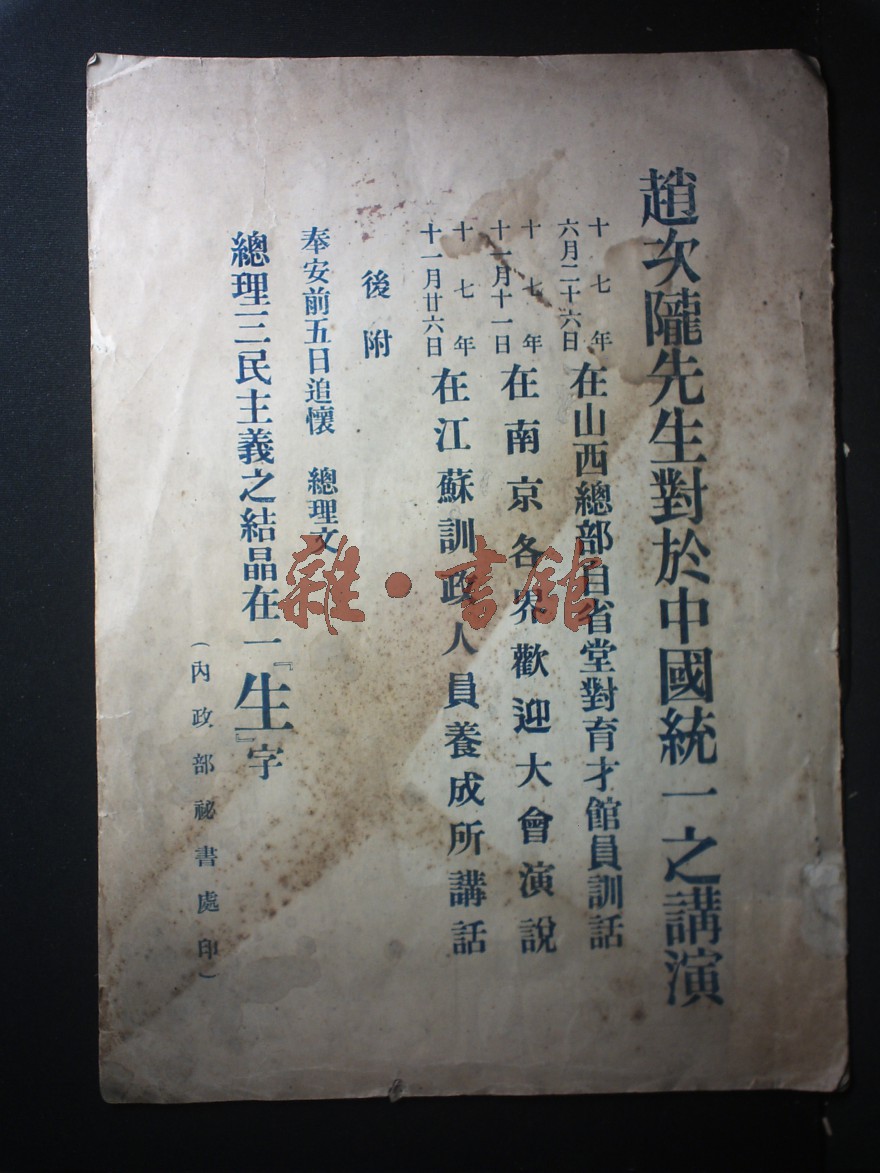 趙次隴先生對於中國統一之講演
十七年
六月二十六日
在山西總部自省堂對育才館員訓話
十七年
十一月十一日
在南京各界歡迎大會演說
十七年
十一月廿六日
在江蘇訓政人員養成所講話
後附
奉安前五日追懷 總理文
總理三民主義之結晶在一『生』字
(內政部祕書處印)
雜·書館